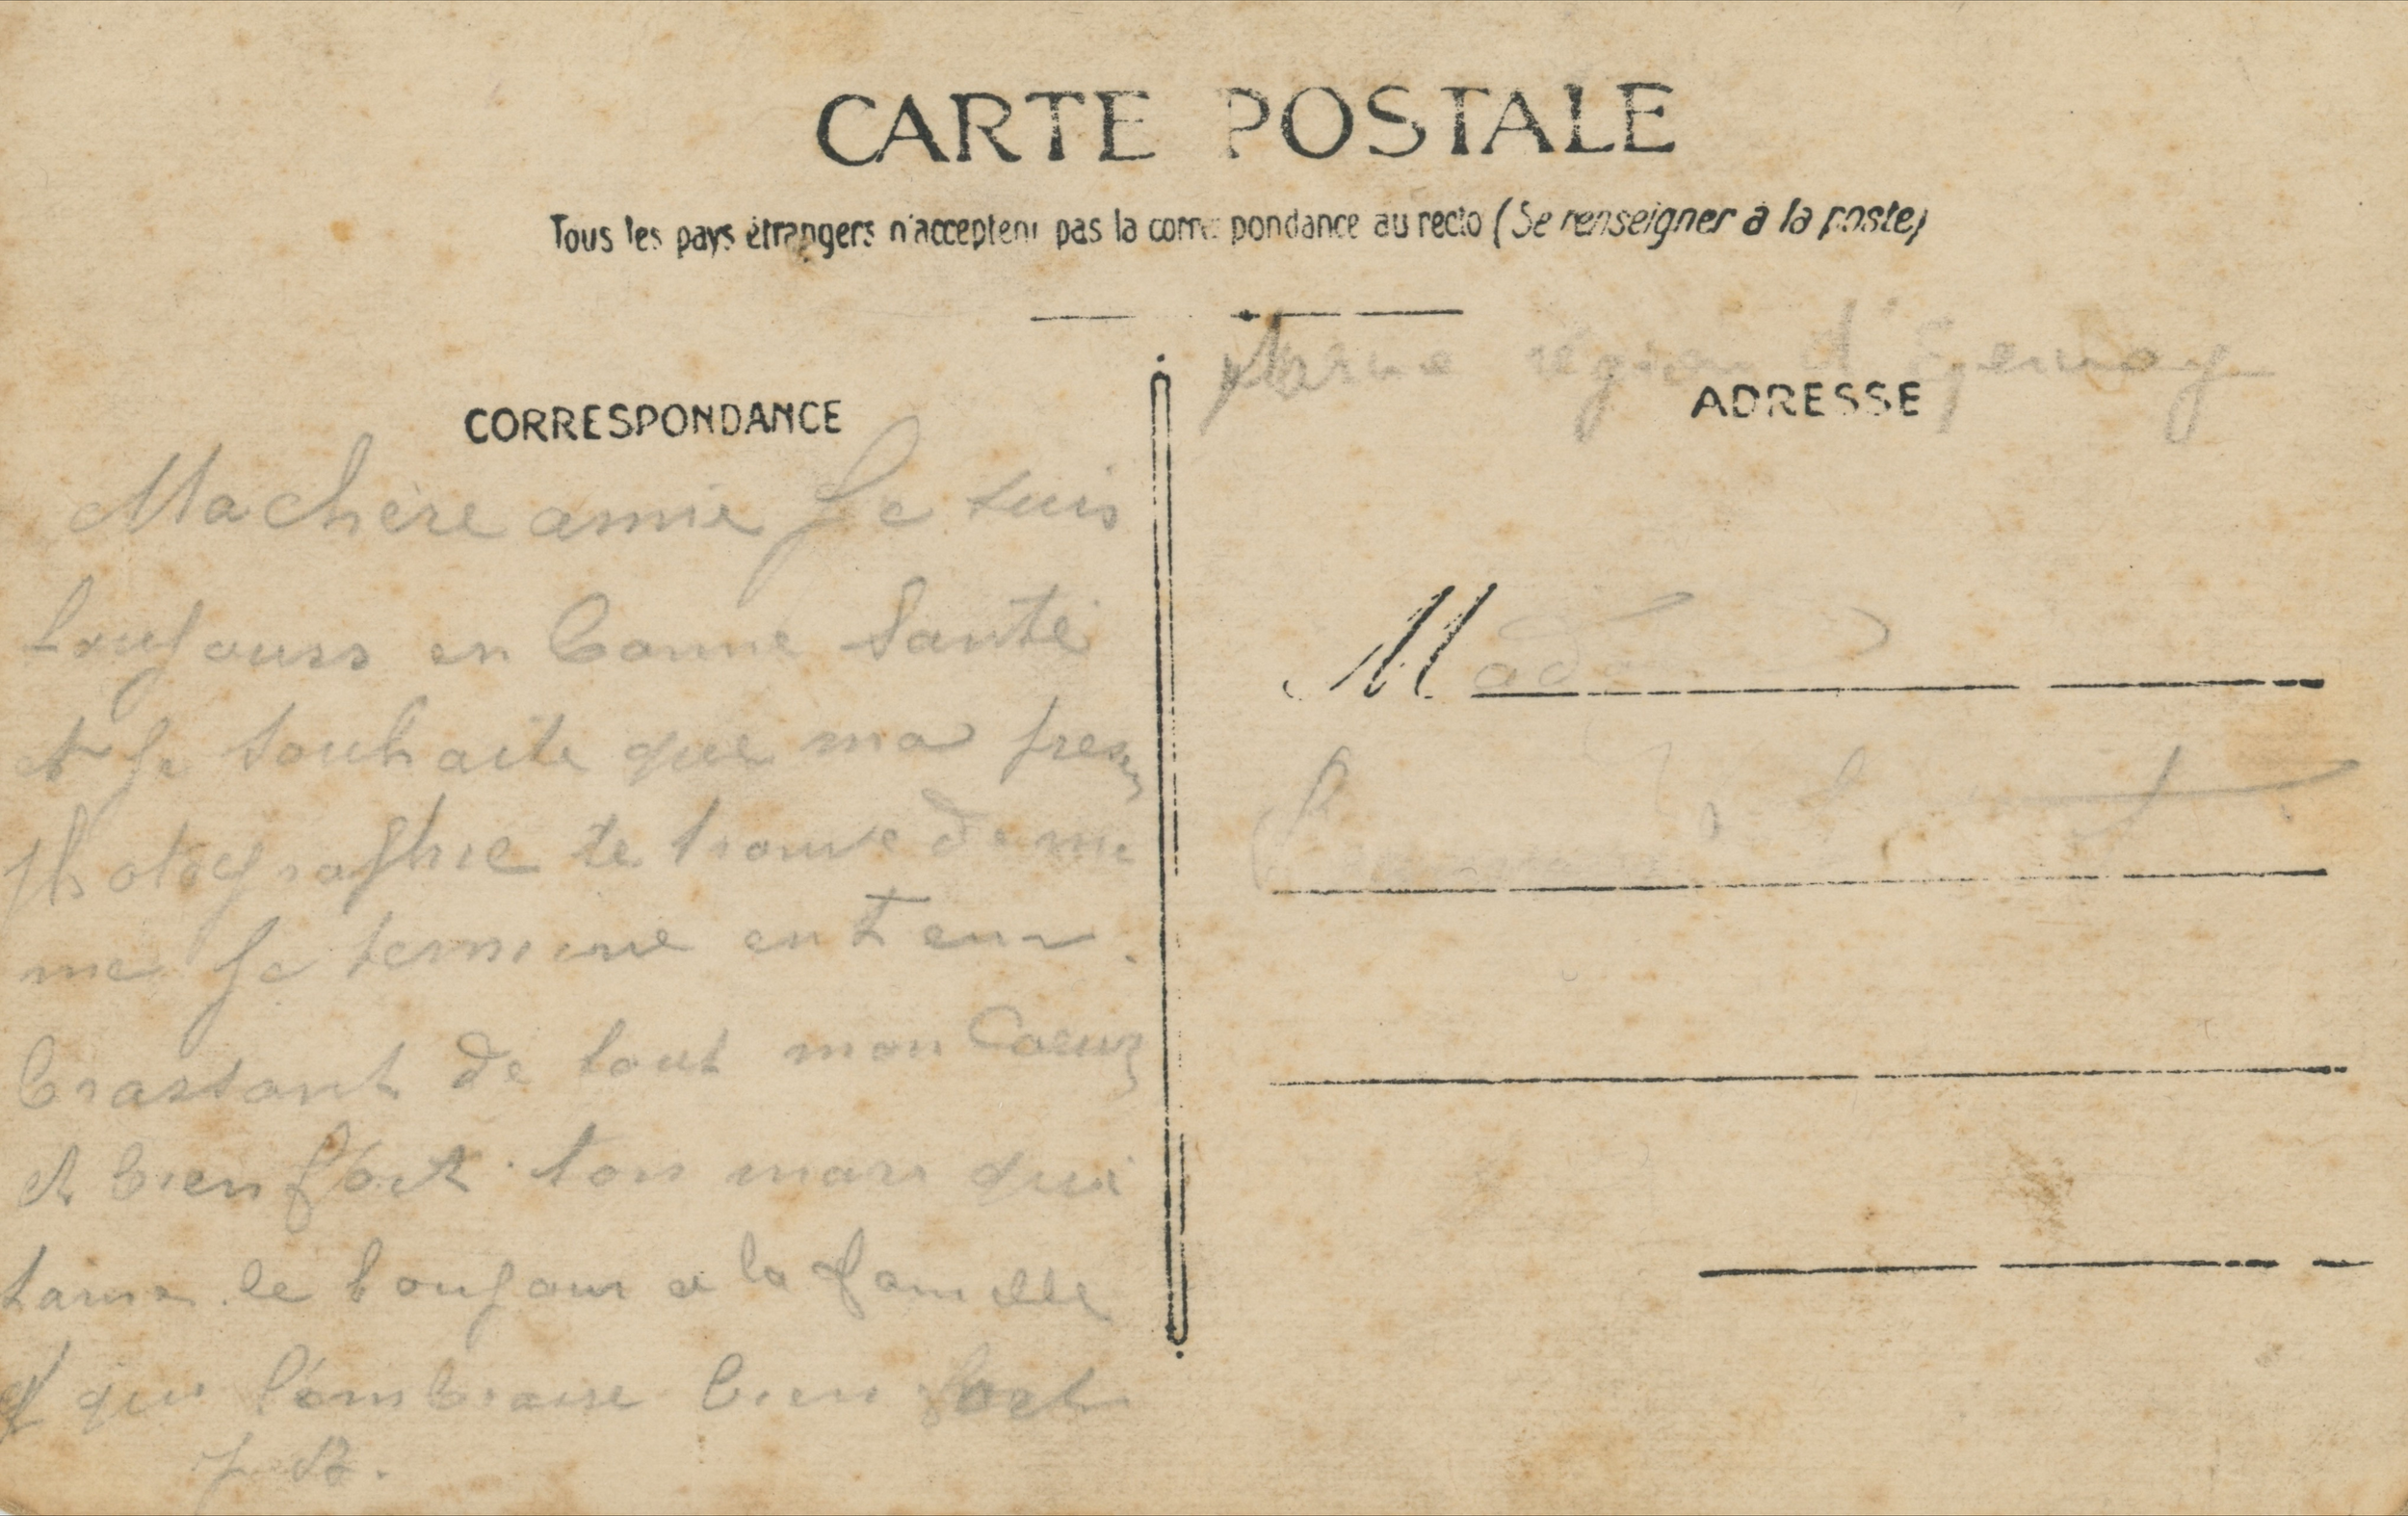 CARTE POSTALE
Tous les pays étrangers n'acceptent pas la correspondance au recto (Se renseigner à la poste)
Marne région d'Epernay
CORRESPONDANCE
ADRESSE
Ma chère amie Je suis
toujours en bonne santé
et je souhaite que ma
photographie te trouve de me
me Je termine en t em
brassant de tout mon Coeur
et bien fort ton mari qui
le bonjour a la famille
et qui l'embrasse bien fort
J. B.
Mad